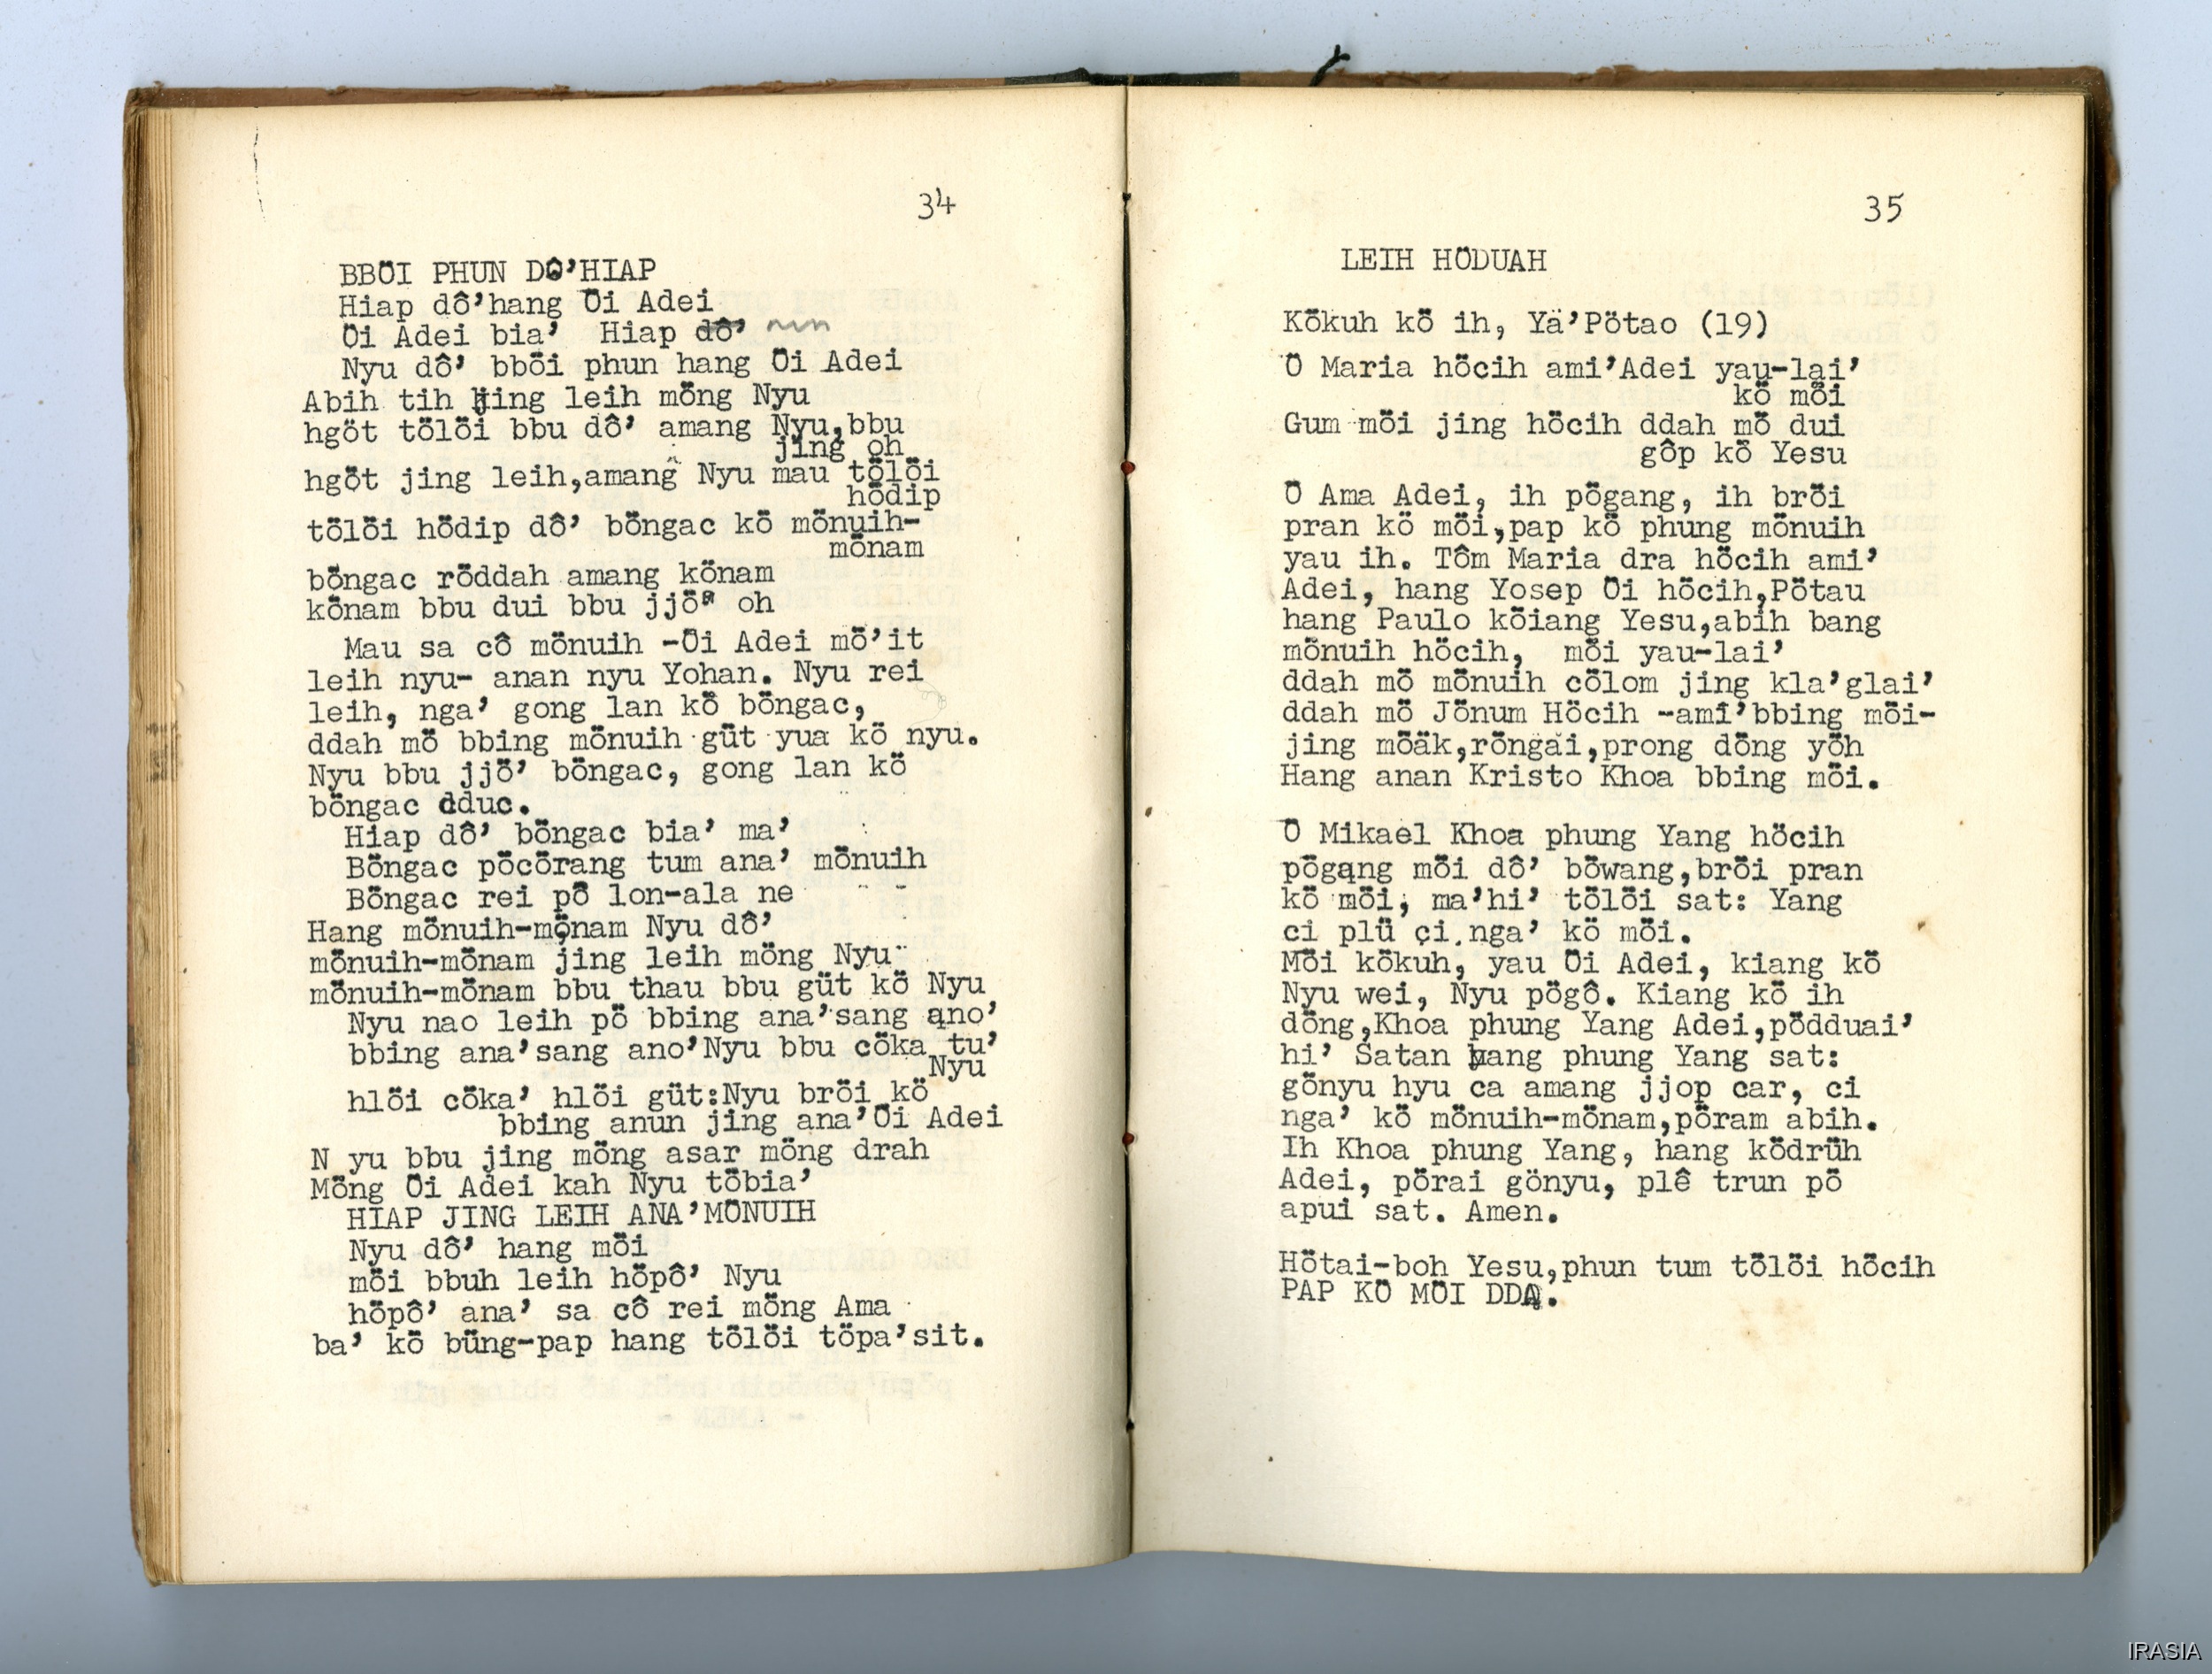 34
BBÖI PHUN DÔ’HIAP
Hiap dô’hang Öi Adei
Öi Adei bia’ Hiap dô’
Nyu dô’ bböi phun hang Öi Adei
Abih tih jing leih möng Nyu
hgöt tölöi bbu dô’ amang Nyu,bbu
jing oh
hgöt jing leih,amang Nyu mau tölöi
hödip
tölöi hödip dô’ böngac kö mönuih-
mönam
böngac röddah amang könam
könam bbu dui bbu jjö’ oh
Mau sa cô mönuih -Öi Adei mö’it
leih nyu- anan nyu Yohan. Nyu rei
leih, nga’ gong lan kö böngac,
ddah mö bbing mönuih güt yua kö nyu.
Nyu bbu jjö’ böngac, gong lan kö
böngac dduc.
Hiap dô’ böngac bia’ ma’
Böngac pöcörang tum ana’ mönuih
Böngac rei pö lon-ala ne
Hang mönuih-mönam Nyu dô’
mönuih-mönam jing leih möng Nyu
mönuih-mönam bbu thau bbu güt kö Nyu
Nyu nao leih pö bbing ana’sang ano’
bbing ana’sang ano’Nyu bbu cöka tu’
Nyu
hlöi cöka’ hlöi güt:Nyu bröi kö
bbing anun jing ana’Öi Adei
N yu bbu jing möng asar möng drah
Möng Öi Adei kah Nyu töbia’
HIAP JING LEIH ANA’MÖNUIH
Nyu dô’ hang möi
möi bbuh leih höpô’ Nyu
höpô’ ana’ sa cô rei möng Ama
ba’ kö büng-pap hang tölöi töpa’sit.
35
LEIH HÖDUAH
Kökuh kö ih, Yä’Pötao (19)
Ö Maria höcih ami’Adei yau-lai’
kö möi
Gum möi jing höcih ddah mö dui
gôp kö Yesu
Ö Ama Adei, ih pögang, ih bröi
pran kö möi,pap kö phung mönuih
yau ih. Tôm Maria dra höcih ami’
Adei, hang Yosep Öi höcih,Pötau
hang Paulo köiang Yesu,abih bang
mönuih höcih, möi yau-lai’
ddah mö mönuih cölom jing kla’glai’
ddah mö Jönum Höcih -ami’bbing möi-
jing möäk,röngai,prong döng yöh
Hang anan Kristo Khoa bbing möi.
Ö Mikael Khoa phung Yang höcih
pögang möi dô’ böwang,bröi pran
kö möi, ma’hi’ tölöi sat: Yang
ci plü çi nga’ kö möi.
Möi kökuh, yau Öi Adei, kiang kö
Nyu wei, Nyu pögô. Kiang kö ih
döng,Khoa phung Yang Adei,pödduai’
hi’ Satan hang phung Yang sat:
gönyu hyu ca amang jjop car, ci
nga’ kö mönuih-mönam,pöram abih.
Ih Khoa phung Yang, hang ködrüh
Adei, pörai gönyu, plê trun pö
apui sat. Amen.
Hötai-boh Yesu,phun tum tölöi höcih
PAP KÖ MÖI DDA.
IRASIA